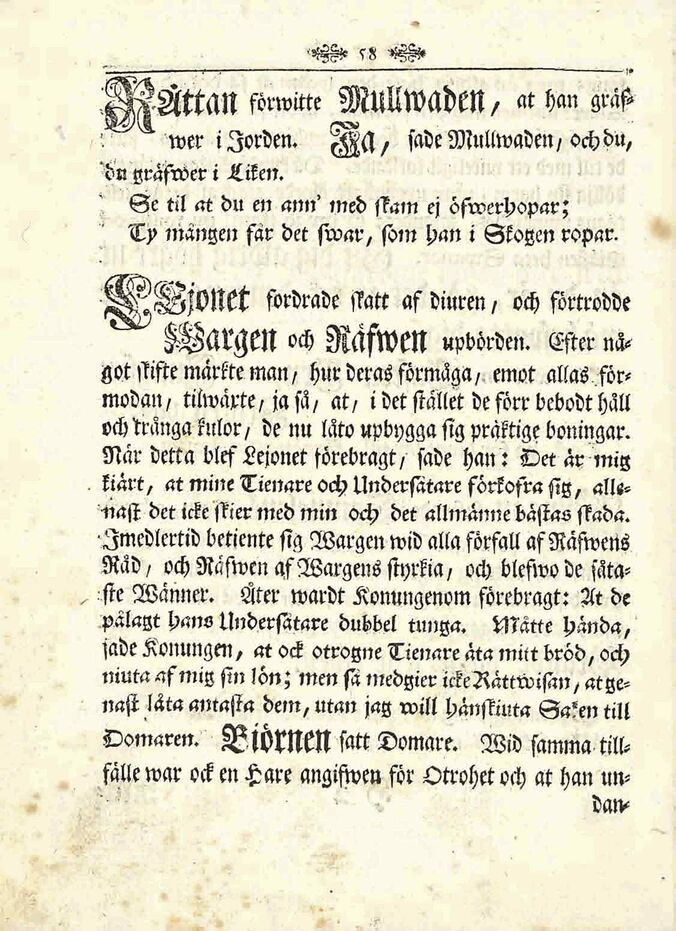 58
RÅttan förwitte Mullwaden, at han gräf-
wer i Jorden. Ja, sade Mullwaden, och du,
du gräfwer i Liken.
Se til at du en ann' med skam ej öfwerhopar;
Ty mången får det swar, som han i Skogen ropar.
LEjonet fordrade skatt af diuren, och förtrodde
Wargen och Räfwen upbörden. Efter nå-
got skifte märkte man, hur deras förmåga, emot allas för-
modan, tilwäxte, ja så, at, i det stället de förr bebodt håll
och trånga kulor, de nu låto upbygga sig präktige boningar.
När detta blef Lejonet förebragt, sade han: Det är mig
kiärt, at mine Tienare och Undersåtare förkofra sig, alle-
nast det icke skier med min och det allmänne bästas skada.
Imedlertid betiente sig Wargen wid alla förfall af Räfwens
Råd, och Räfwen af Wargens styrkia, och blefwo de såta-
ste Wänner. Åter wardt Konungenom förebragt: At de
pålagt hans Undersåtare dubbel tunga. Måtte hända,
sade Konungen, at ock otrogne Tienare äta mitt bröd, och
niuta af mig sin lön; men så medgier icke Rättwisan, at ge-
nast låta antasta dem, utan jag will hänskiuta Saken till
Domaren. Biörnen satt Domare. Wid samma till-
fälle war ock en Hare angifwen för Otrohet och at han un-
dan-